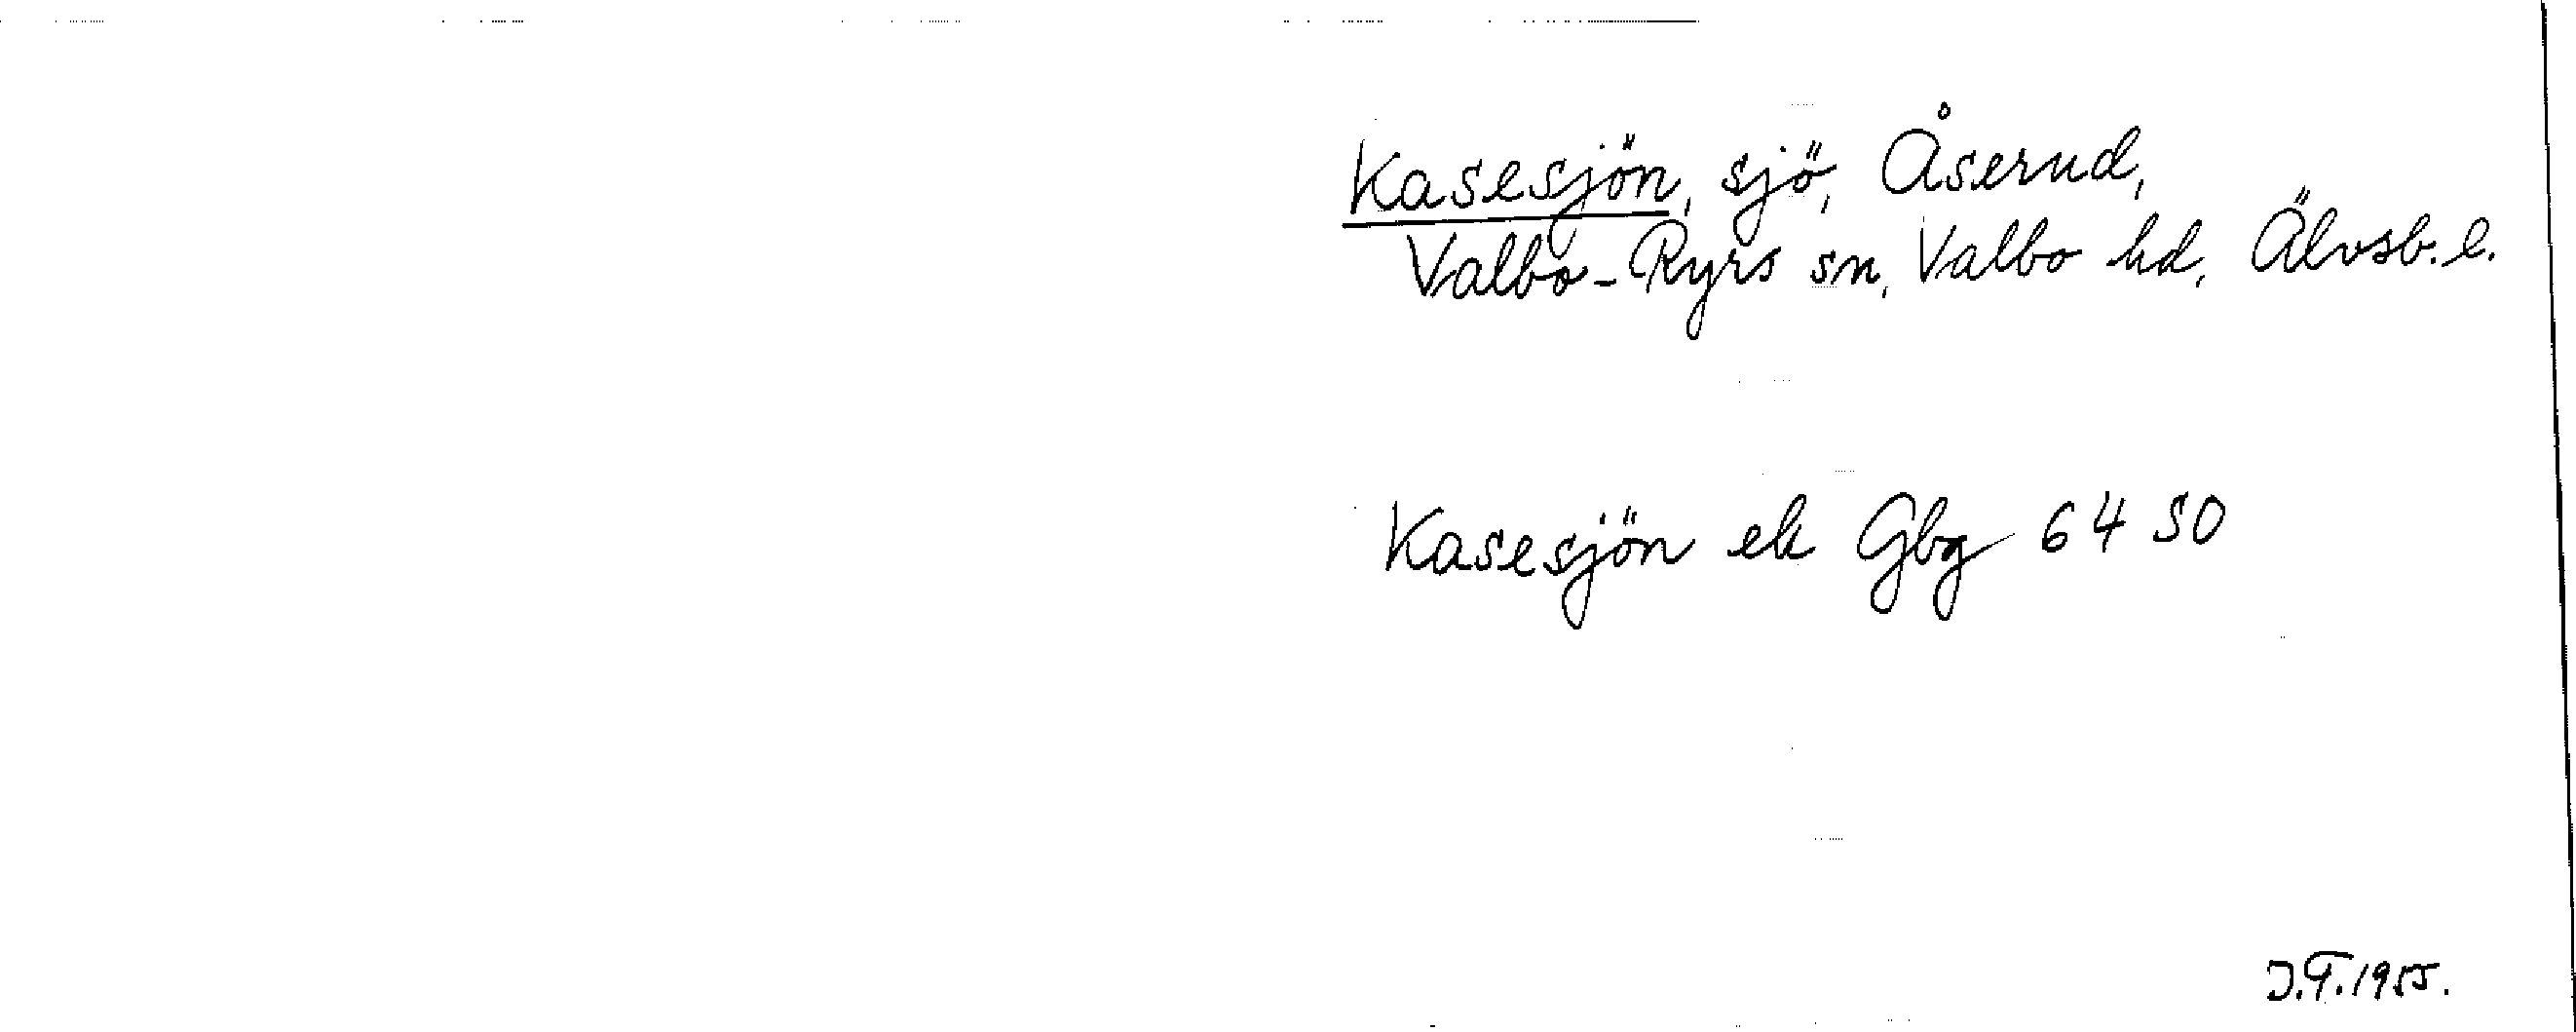 Kasesjön, sjö, Åserud,
Valbo-Ryrs sn, Valbo hd, Älvsb. l.
Kasesjön ek Gbg 64 SO
J.T. 1955.